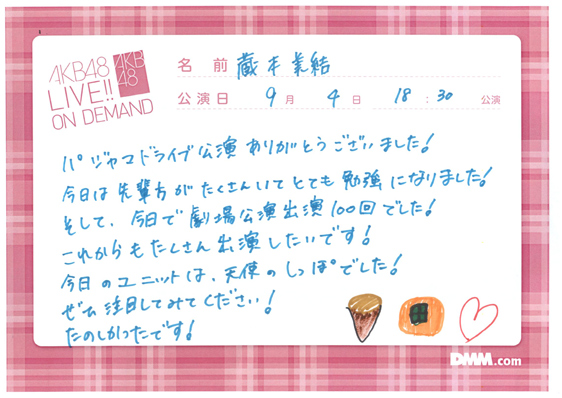 AKB48
LIVE!!
ON DEMAND
AKB
48
名 前 蔵本美結
公演日 9月 4日 18:30 公演
パジャマドライブ公演ありがとうございました!
今日は先輩方がたくさんいてとても勉強になりました!
そして、今日で劇場公演出演100回でした!
これからもたくさん出演したいです!
今日のユニットは、天使のしっぽでした!
ぜひ注目してみてください!
たのしかったです!
DMM.com